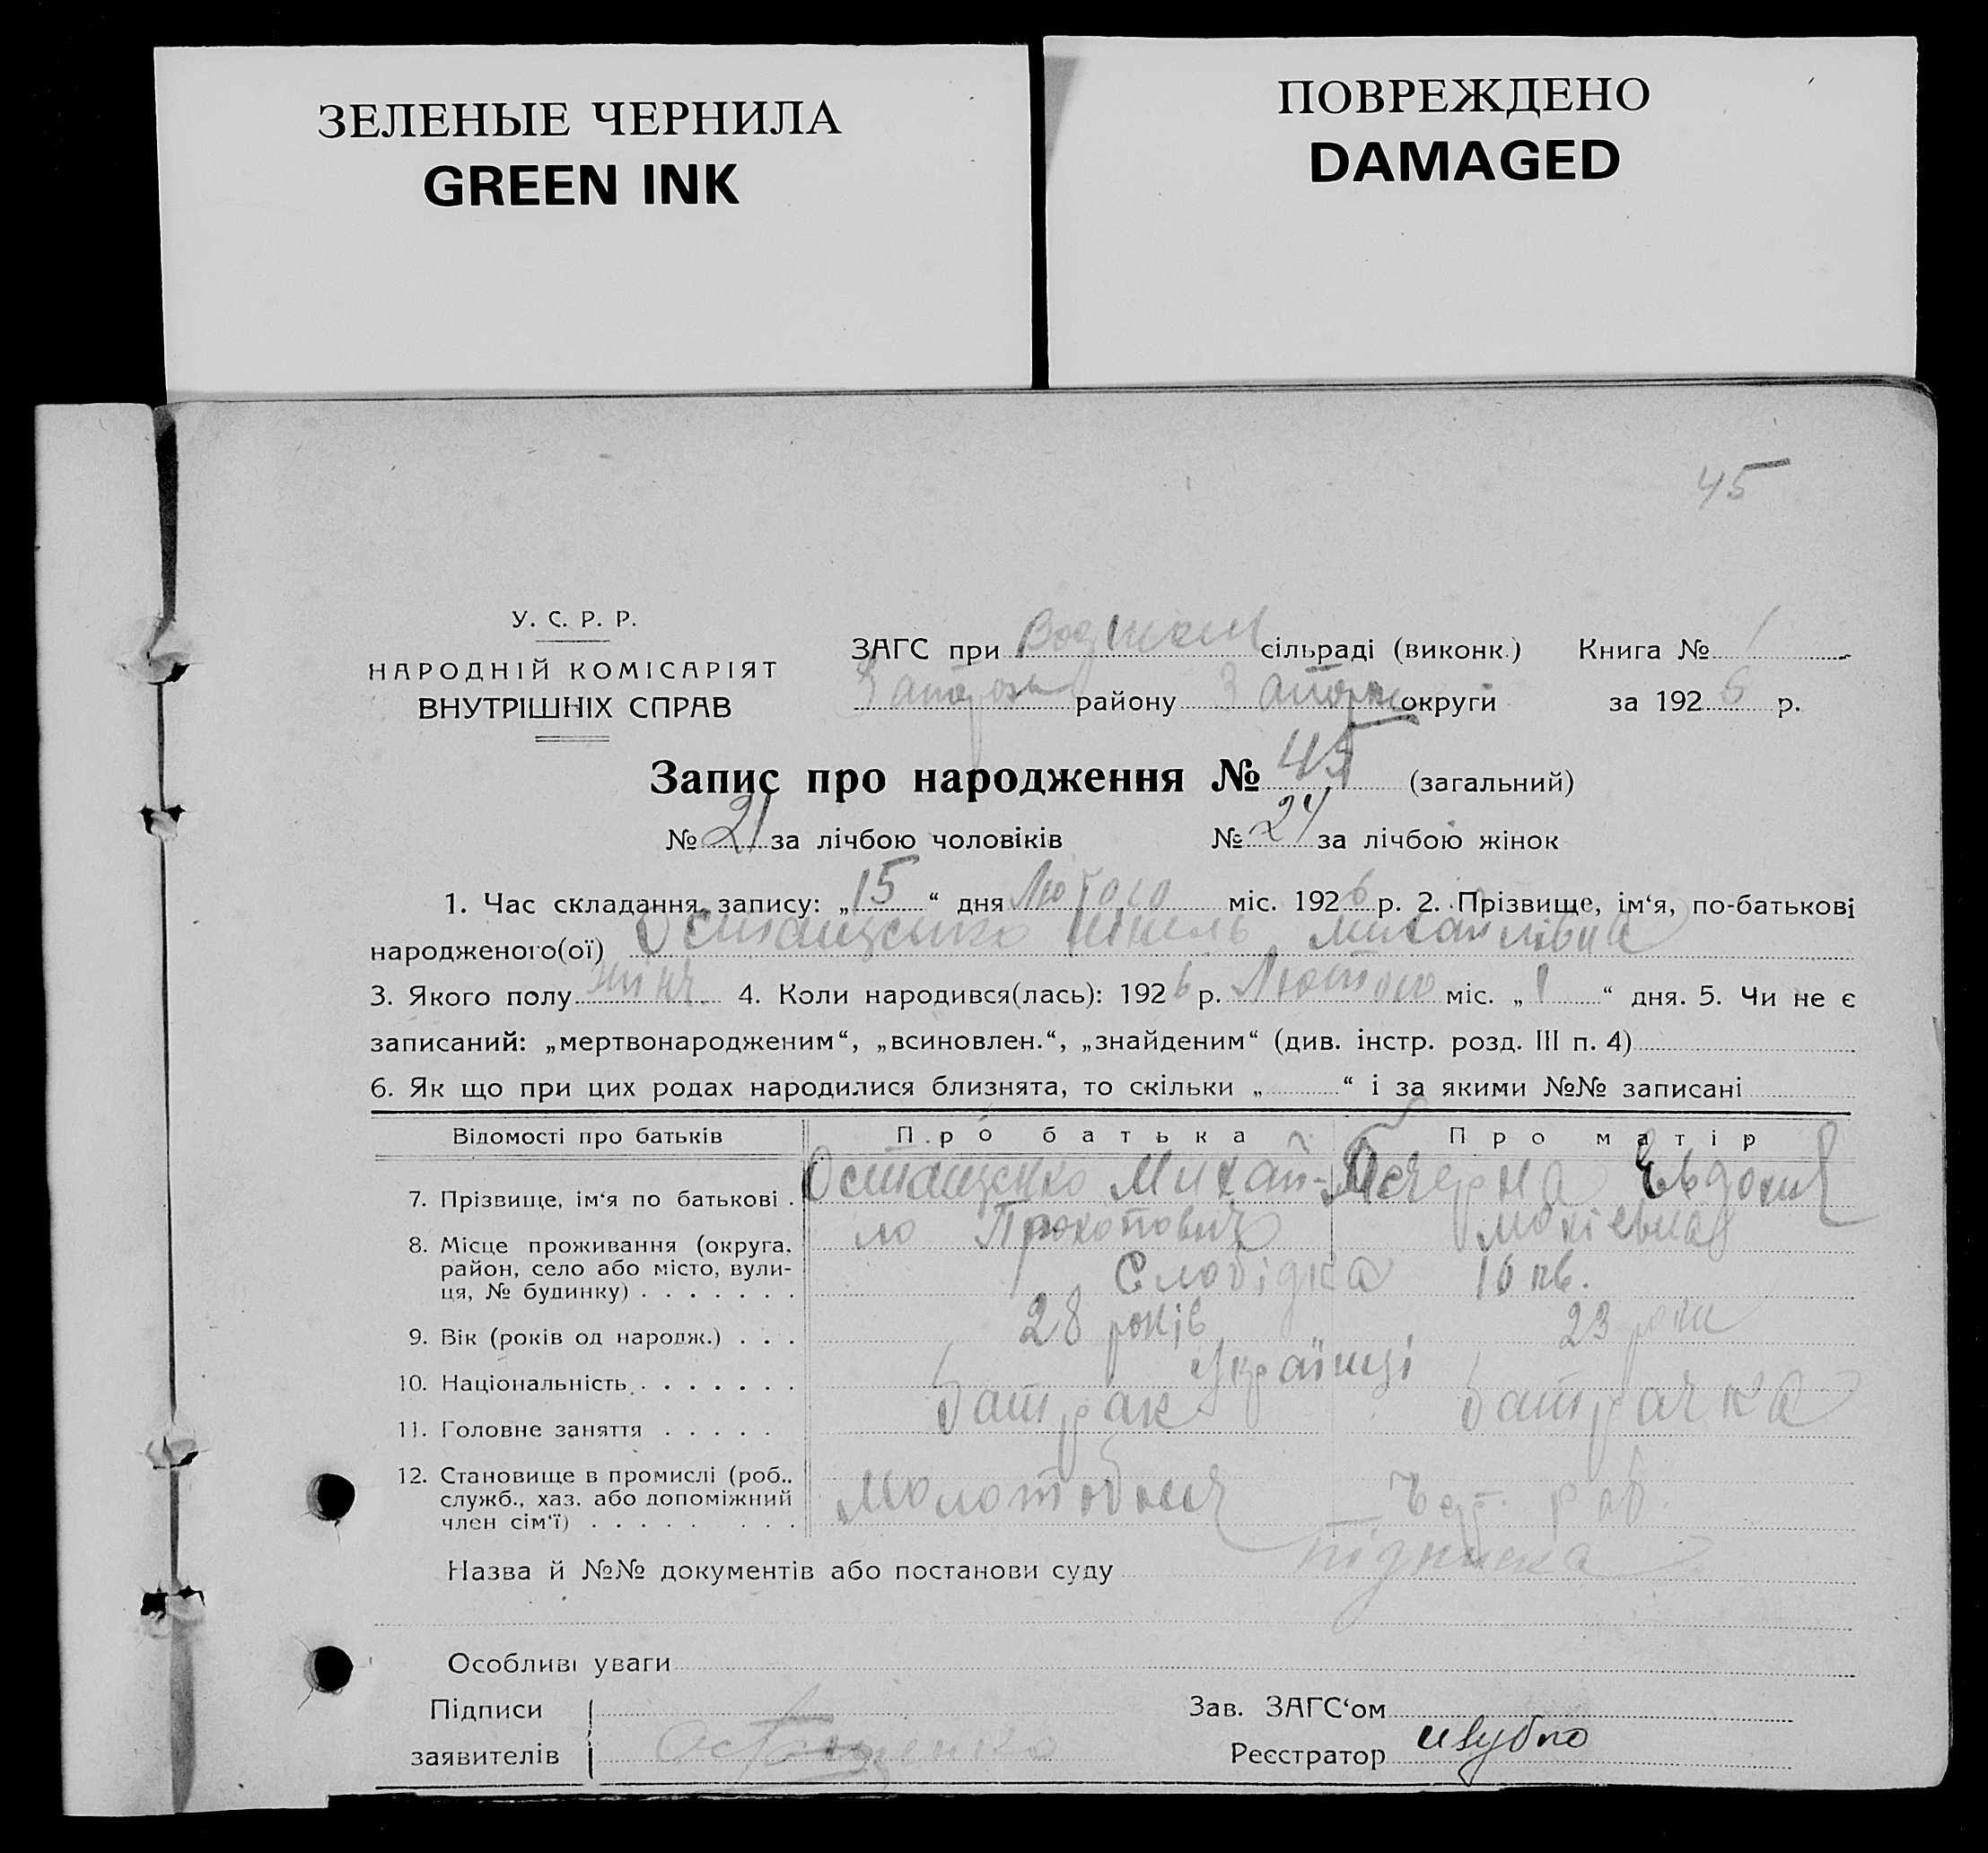 ЗЕЛЕНЫЕ ЧЕРНИЛА
GREEN INK
ПОВРЕЖДЕНО
DAMAGED
45
У. С. Р. Р.
НАРОДНІЙ КОМІСАРІЯТ
ВНУТРІШНІХ СПРАВ
ЗАГС при сільраді (виконк.) Книга № 1
району округи за 1926 р.
Запис про народження № 45 (загальний)
№ 21 за лічбою чоловіків № 24 за лічбою жінок
1. Час складання запису: „15“ дня Лютого міс. 1926 р. 2. Прізвище, ім‘я, по-батькові
народженого(ої) Остащенко Нінель Михайлівна
3. Якого полу жінч. 4. Коли народився(лась): 1926 р. Лютого міс. „1“ дня. 5. Чи не є
записаний: „мертвонародженим“, „всиновлен.“, „знайденим“ (див. інстр. розд. III п. 4)
6. Як що при цих родах народилися близнята, то скільки „ “ і за якими №№ записані
Відомості про батьків Про батька Про матір
7. Прізвище, ім‘я по батькові . Остащенко Михай- Евдокия
ло Прокопович Мокіевна
8. Місце проживання (округа, район, село або місто, вули-
ця, № будинку) . . . . . . . Слобідка 10 кв.
9. Вік (років од народж.) . . . 28 років 23 роки
10. Національність . . . . . . . Українці
11. Головне заняття . . . . . батрак батрачка
12. Становище в промислі (роб.,
служб., хаз. або допоміжний
член сім‘ї) . . . . . . . . Молотобоец роб.
Назва й №№ документів або постанови суду підписка
Особливі уваги
Підписи Зав. ЗАГС‘ом
заявителів Остащенко Реєстратор